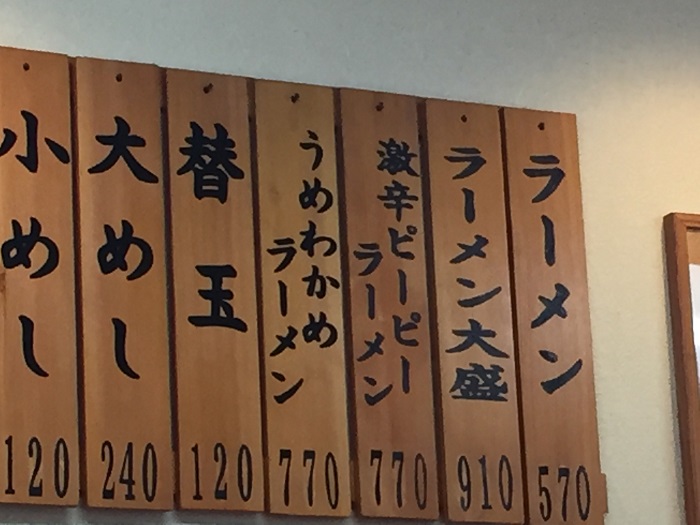 ラーメン
570
ラーメン大盛
910
激辛ピーピー
ラーメン
770
うめわかめ
ラーメン
770
替玉
120
大めし
240
小めし
120